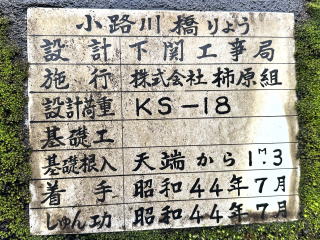 小路川橋りょう
設計 下関工事局
施行 株式会社 柿原組
設計荷重 KS-18
基礎工
基礎根入 天端から1ᴹ.3
着手 昭和44年7月
しゅん功 昭和44年7月